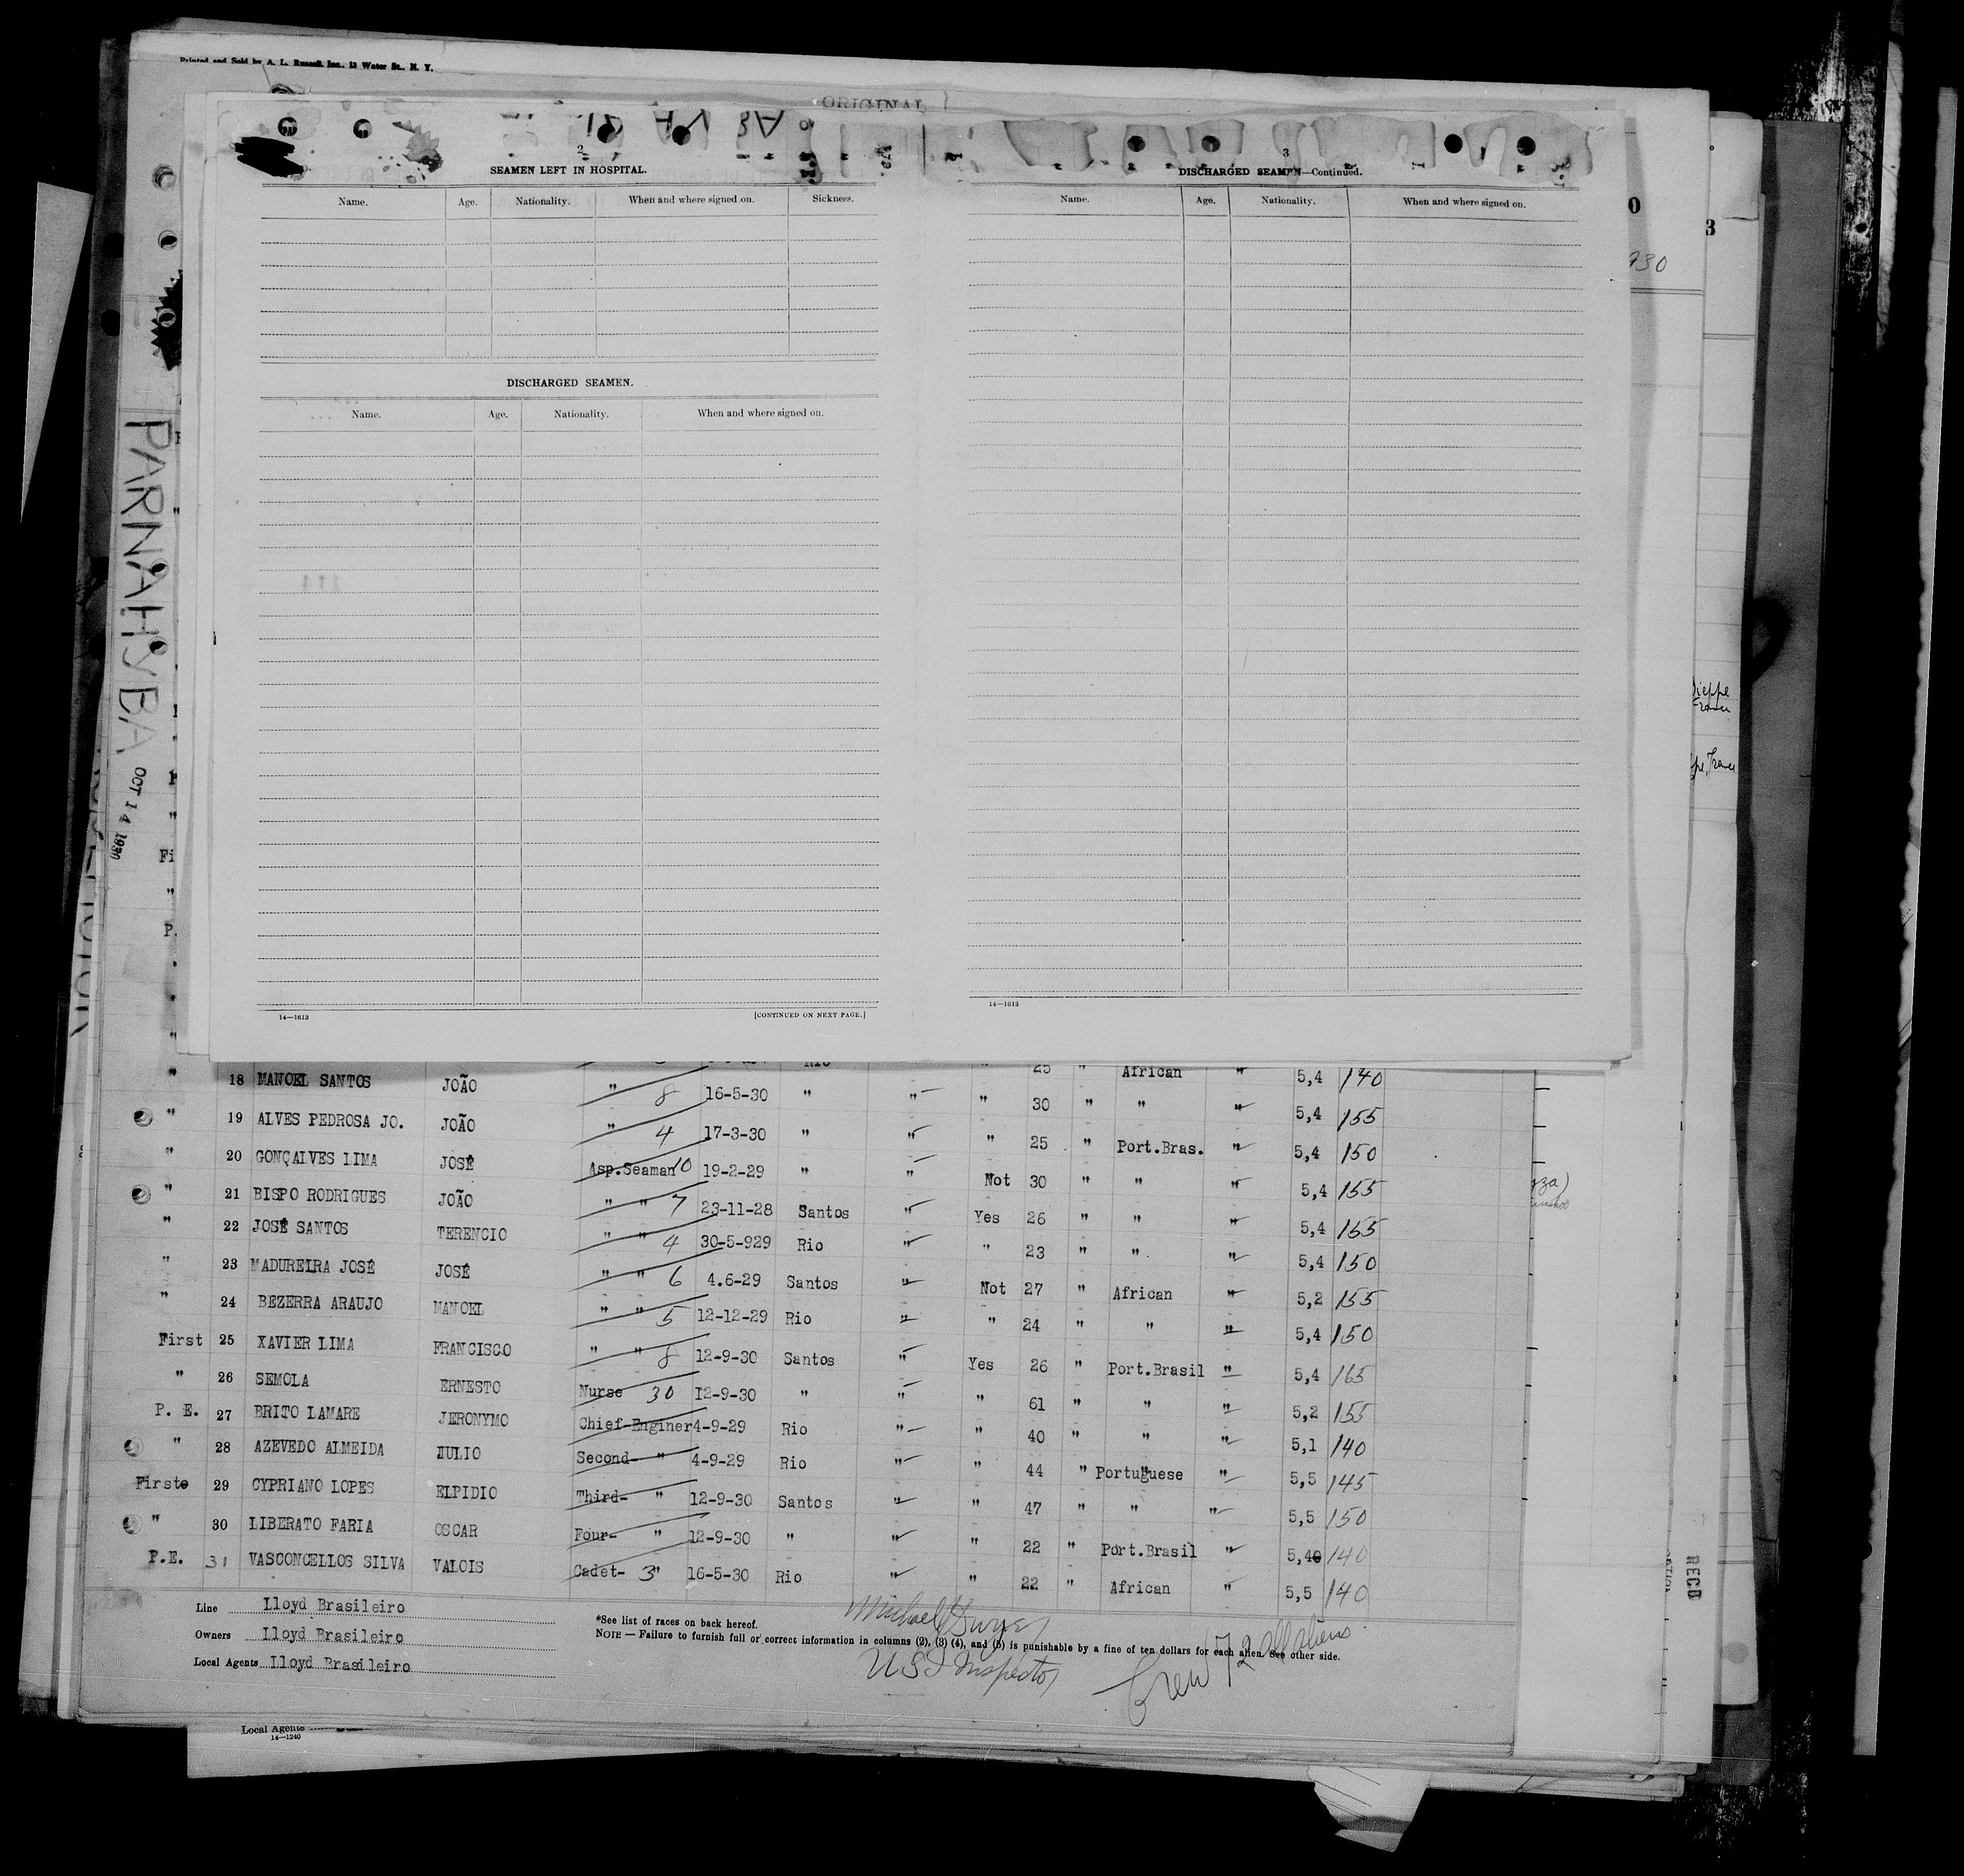 Printed and Sold by A. L. Russell, Inc., 13 Water St., N. Y.
ORIGINAL
2
SEAMEN LEFT IN HOSPITAL.
Name. Age. Nationality. When and where signed on. Sickness.
DISCHARGED SEAMEN.
Name. Age. Nationality. When and where signed on.
14—1613
[CONTINUED ON NEXT PAGE.]
3
DISCHARGED SEAMEN—Continued.
Name. Age. Nationality. When and where signed on.
14—1613
PARNAHYBA OCT 14 1930
Dieppe
France
" 18 MANOEL SANTOS JOÃO " 8 16-5-30 " " " 30 " " " 5,4 140
" 19 ALVES PEDROSA JO. JOÃO " 4 17-3-30 " " " 25 " Port.Bras. " 5,4 155
" 20 GONÇALVES LIMA JOSÉ Asp.Seaman 10 19-2-29 " " Not 30 " " " 5,4 150
" 21 BISPO RODRIGUES JOÃO " " 7 23-11-28 Santos " Yes 26 " " " 5,4 155
" 22 JOSÉ SANTOS TERENCIO " " 4 30-5-929 Rio " " 23 " " " 5,4 155
" 23 MADUREIRA JOSÉ JOSÉ " " 6 4.6-29 Santos " Not 27 " African " 5,4 150
" 24 BEZERRA ARAUJO MANOEL " " 5 12-12-29 Rio " " 24 " " " 5,2 155
First 25 XAVIER LIMA FRANCISCO " " 8 12-9-30 Santos " Yes 26 " Port.Brasil " 5,4 150
" 26 SEMOLA ERNESTO Nurse 30 12-9-30 " " " 61 " " " 5,4 165
P. E. 27 BRITO LAMARE JERONYMO Chief-Enginer 4-9-29 Rio " " 40 " " " 5,2 155
" 28 AZEVEDO ALMEIDA JULIO Second- " 4-9-29 Rio " " 44 " Portuguese " 5,1 140
Firste 29 CYPRIANO LOPES ELPIDIO Third- " 12-9-30 Santos " " 47 " " " 5,5 145
" 30 LIBERATO FARIA OSCAR Four- " 12-9-30 " " " 22 " Port.Brasil " 5,5 150
P.E. 31 VASCONCELLOS SILVA VALOIS Cadet- 3 " 16-5-30 Rio " " 22 " African " 5,40 140
5,5 140
Line Lloyd Brasileiro
Owners Lloyd Brasileiro
Local Agents Lloyd Brasileiro
*See list of races on back hereof.
NOTE — Failure to furnish full or correct information in columns (2), (3) (4), and (5) is punishable by a fine of ten dollars for each alien. See other side.
Michael
U S I Inspector
Crew 72 all aliens
RECD
Local Agents
14—1240